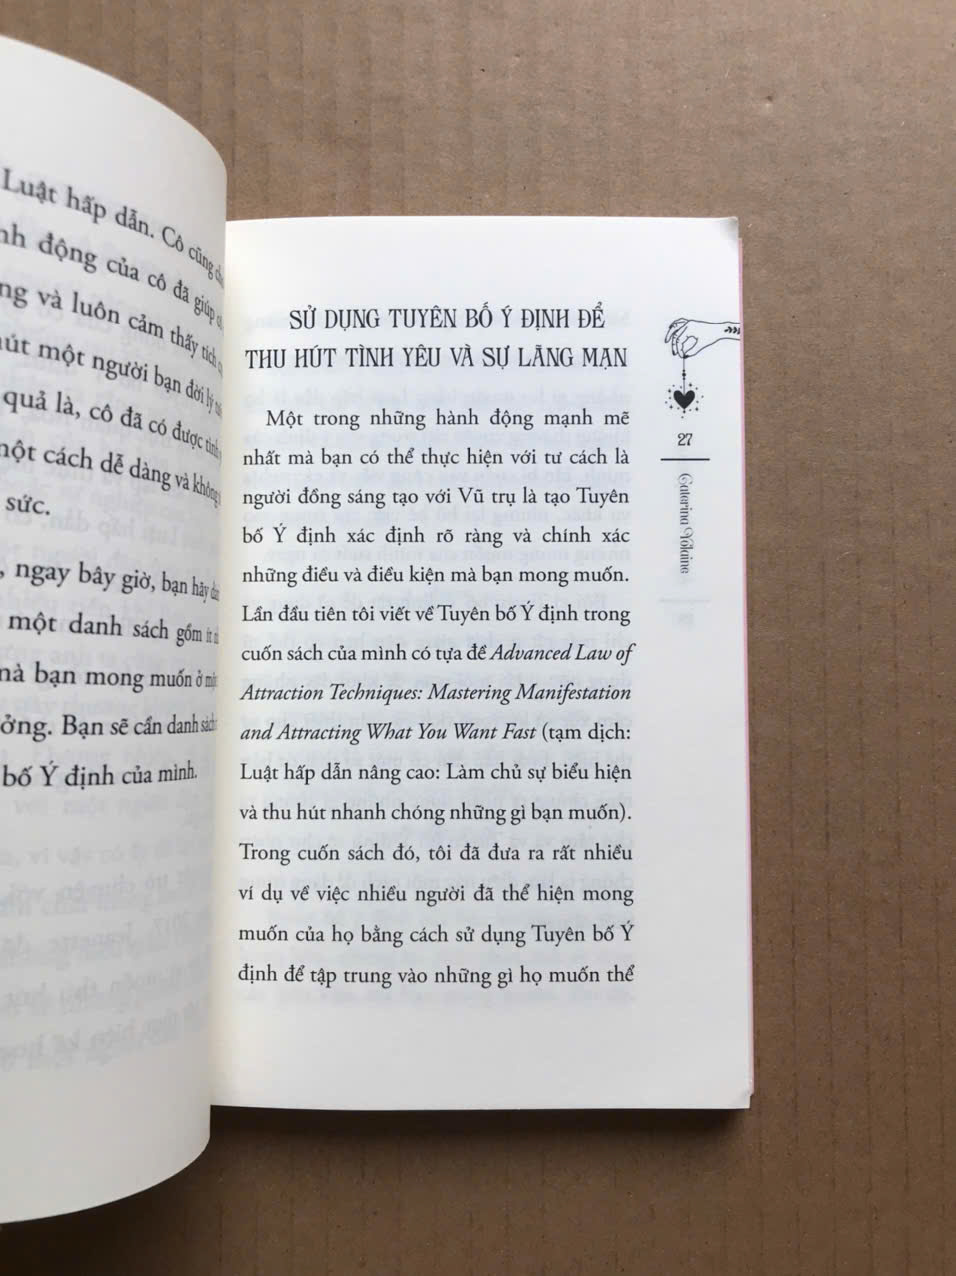 Luật hấp dẫn. Cô cũng
động của cô đã giúp
và luôn cảm thấy tích
một người bạn đời lý
quả là, cô đã có được tình
một cách dễ dàng và không
sức.
ngay bây giờ, bạn hãy
một danh sách gồm ít
mà bạn mong muốn ở
Bạn sẽ cần danh sách
bố Ý định của mình.
SỬ DỤNG TUYÊN BỐ Ý ĐỊNH ĐỂ
THU HÚT TÌNH YÊU VÀ SỰ LÃNG MẠN
Một trong những hành động mạnh mẽ
nhất mà bạn có thể thực hiện với tư cách là
người đồng sáng tạo với Vũ trụ là tạo Tuyên
bố Ý định xác định rõ ràng và chính xác
những điều và điều kiện mà bạn mong muốn.
Lần đầu tiên tôi viết về Tuyên bố Ý định trong
cuốn sách của mình có tựa đề Advanced Law of
Attraction Techniques: Mastering Manifestation
and Attracting What You Want Fast (tạm dịch:
Luật hấp dẫn nâng cao: Làm chủ sự biểu hiện
và thu hút nhanh chóng những gì bạn muốn).
Trong cuốn sách đó, tôi đã đưa ra rất nhiều
ví dụ về việc nhiều người đã thể hiện mong
muốn của họ bằng cách sử dụng Tuyên bố Ý
định để tập trung vào những gì họ muốn thể
27
Caterina Yolaine